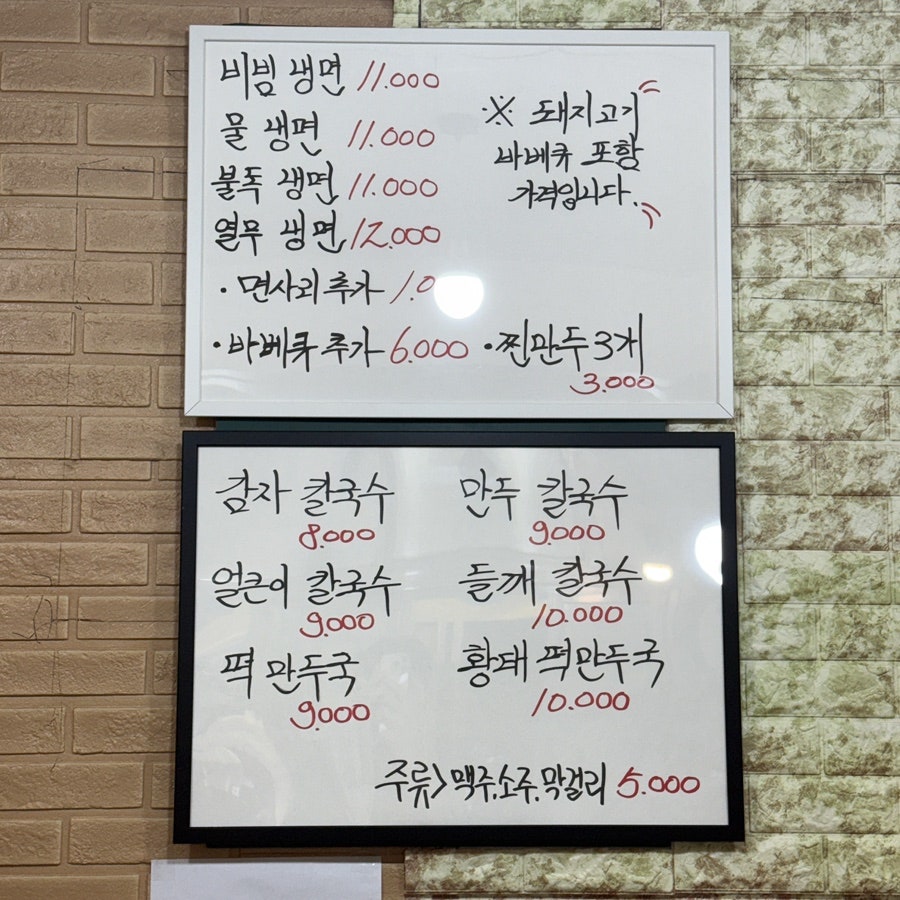 비빔 냉면 11.000
물 냉면 11.000
불독 냉면 11.000
열무 냉면 12.000
· 면사리 추가
· 바베큐 추가 6.000
※ 돼지고기
바베큐 포함
가격입니다.
· 찐만두 3개
3.000
감자 칼국수
8.000
만두 칼국수
9.000
얼큰이 칼국수
9.000
들깨 칼국수
10.000
떡 만두국
9.000
황태 떡만두국
10.000
주류> 맥주.소주.막걸리 5.000